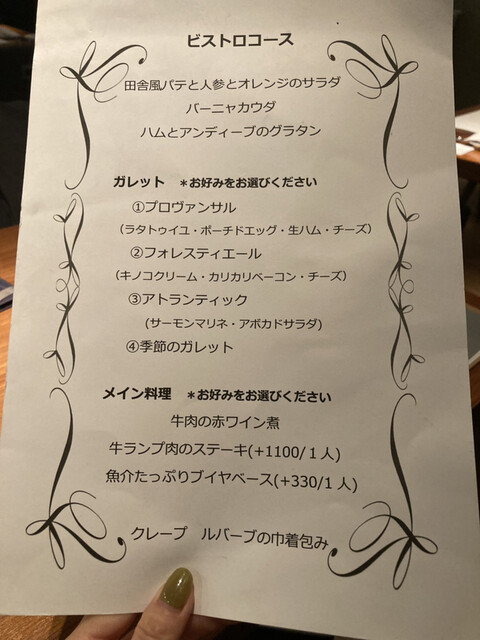 ビストロコース
田舎風パテと人参とオレンジのサラダ
バーニャカウダ
ハムとアンディーブのグラタン
ガレット ＊お好みをお選びください
①プロヴァンサル
(ラタトゥイユ・ポーチドエッグ・生ハム・チーズ)
②フォレスティエール
(キノコクリーム・カリカリベーコン・チーズ)
③アトランティック
(サーモンマリネ・アボカドサラダ)
④季節のガレット
メイン料理 ＊お好みをお選びください
牛肉の赤ワイン煮
牛ランプ肉のステーキ(+1100/１人)
魚介たっぷりブイヤベース(+330/1 人)
クレープ ルバーブの巾着包み